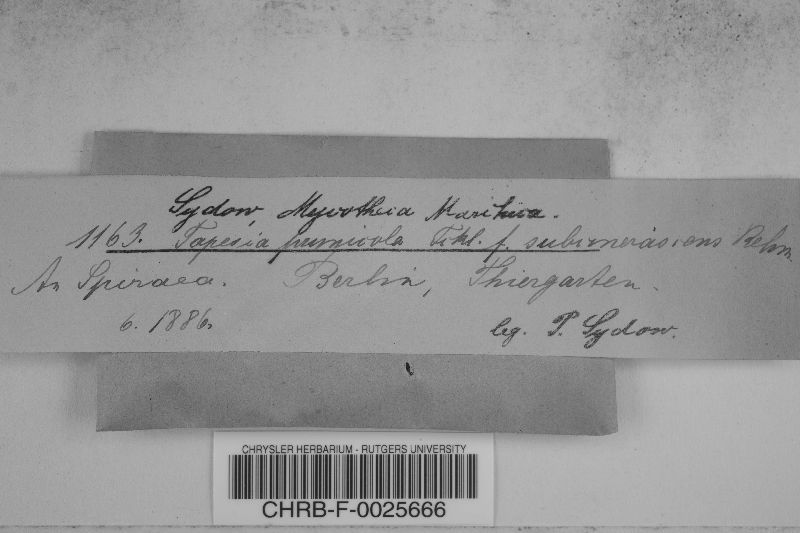 Sydow, Mycotheca Marchica.
1163. Tapesia prunicola Fckl. f. subcinerascens Rehm
An Spiraea. Berlin, Thiergarten.
6. 1886. leg. P. Sydow.
CHRYSLER HERBARIUM - RUTGERS UNIVERSITY
CHRB-F-0025666